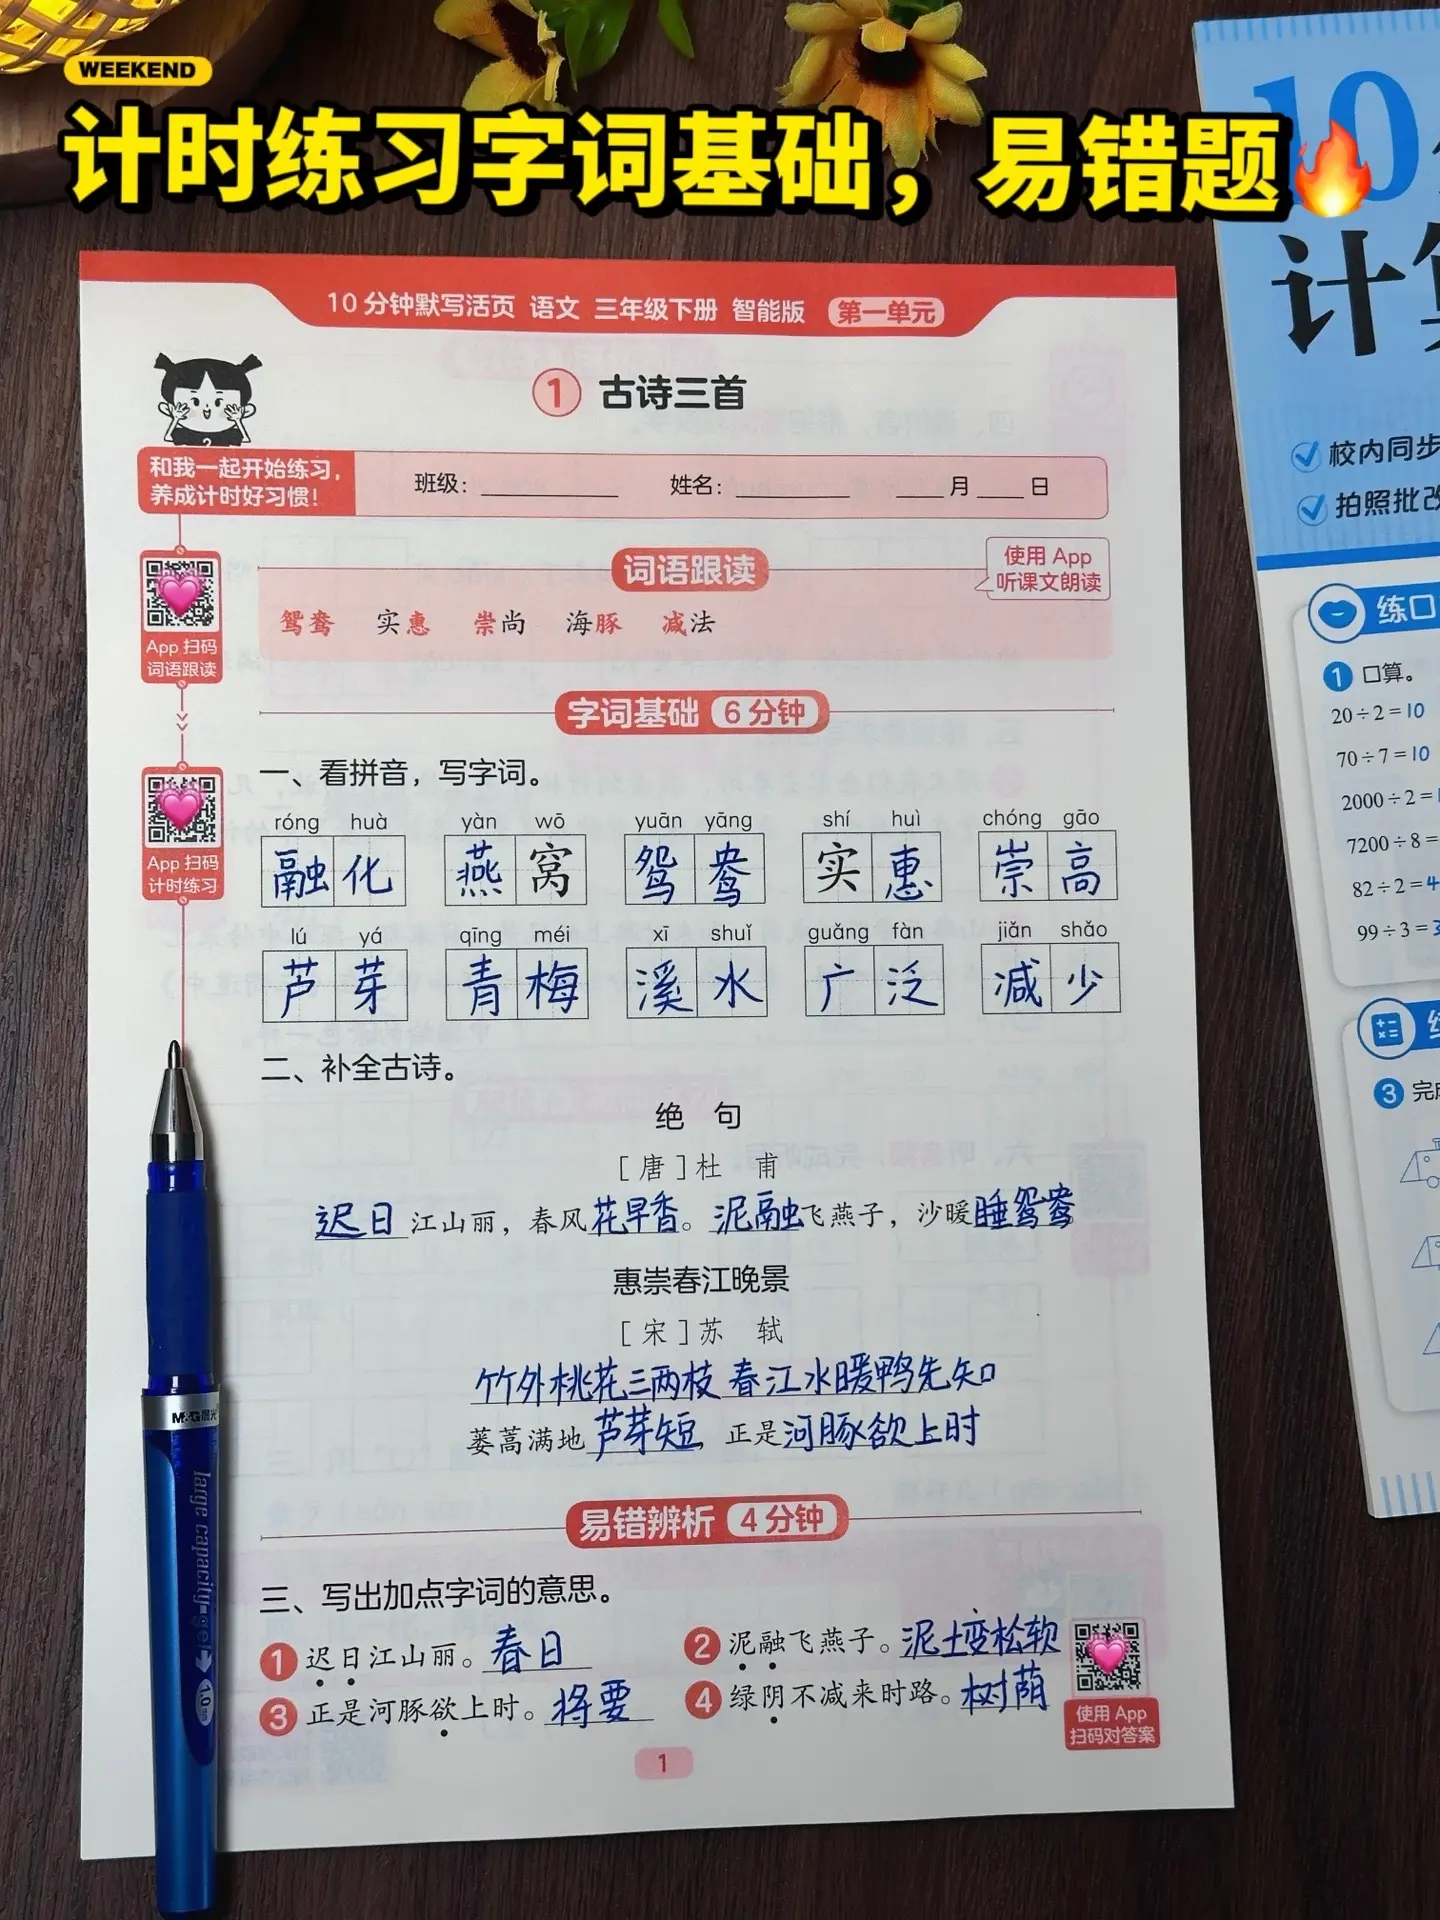 WEEKEND
计时练习字词基础，易错题
10分钟默写活页 语文 三年级下册 智能版 第一单元
1 古诗三首
和我一起开始练习，
养成计时好习惯！
班级：______ 姓名：______ ___月___日
词语跟读
使用 App
听课文朗读
鸳鸯 实惠 崇尚 海豚 减法
App 扫码
词语跟读
字词基础 6分钟
一、看拼音，写字词。
App 扫码
计时练习
róng huà yàn wō yuān yāng shí huì chóng gāo
融化 燕窝 鸳鸯 实惠 崇高
lú yá qīng méi xī shuǐ guǎng fàn jiǎn shǎo
芦芽 青梅 溪水 广泛 减少
二、补全古诗。
绝 句
[唐]杜 甫
迟日江山丽，春风花早香。泥融飞燕子，沙暖睡鸳鸯。
惠崇春江晚景
[宋]苏 轼
竹外桃花三两枝 春江水暖鸭先知
蒌蒿满地芦芽短，正是河豚欲上时
易错辨析 4分钟
三、写出加点字词的意思。
1 迟日江山丽。春日
2 泥融飞燕子。泥土变松软
3 正是河豚欲上时。将要
4 绿阴不减来时路。树荫
使用 App
扫码对答案
1
M&G晨光
large capacity gel
1.0
10
计
校内同步
拍照批改
练口
1 口算。
20÷2=10
70÷7=10
2000÷2=
7200÷8=
82÷2=4
99÷3=3
3 完成